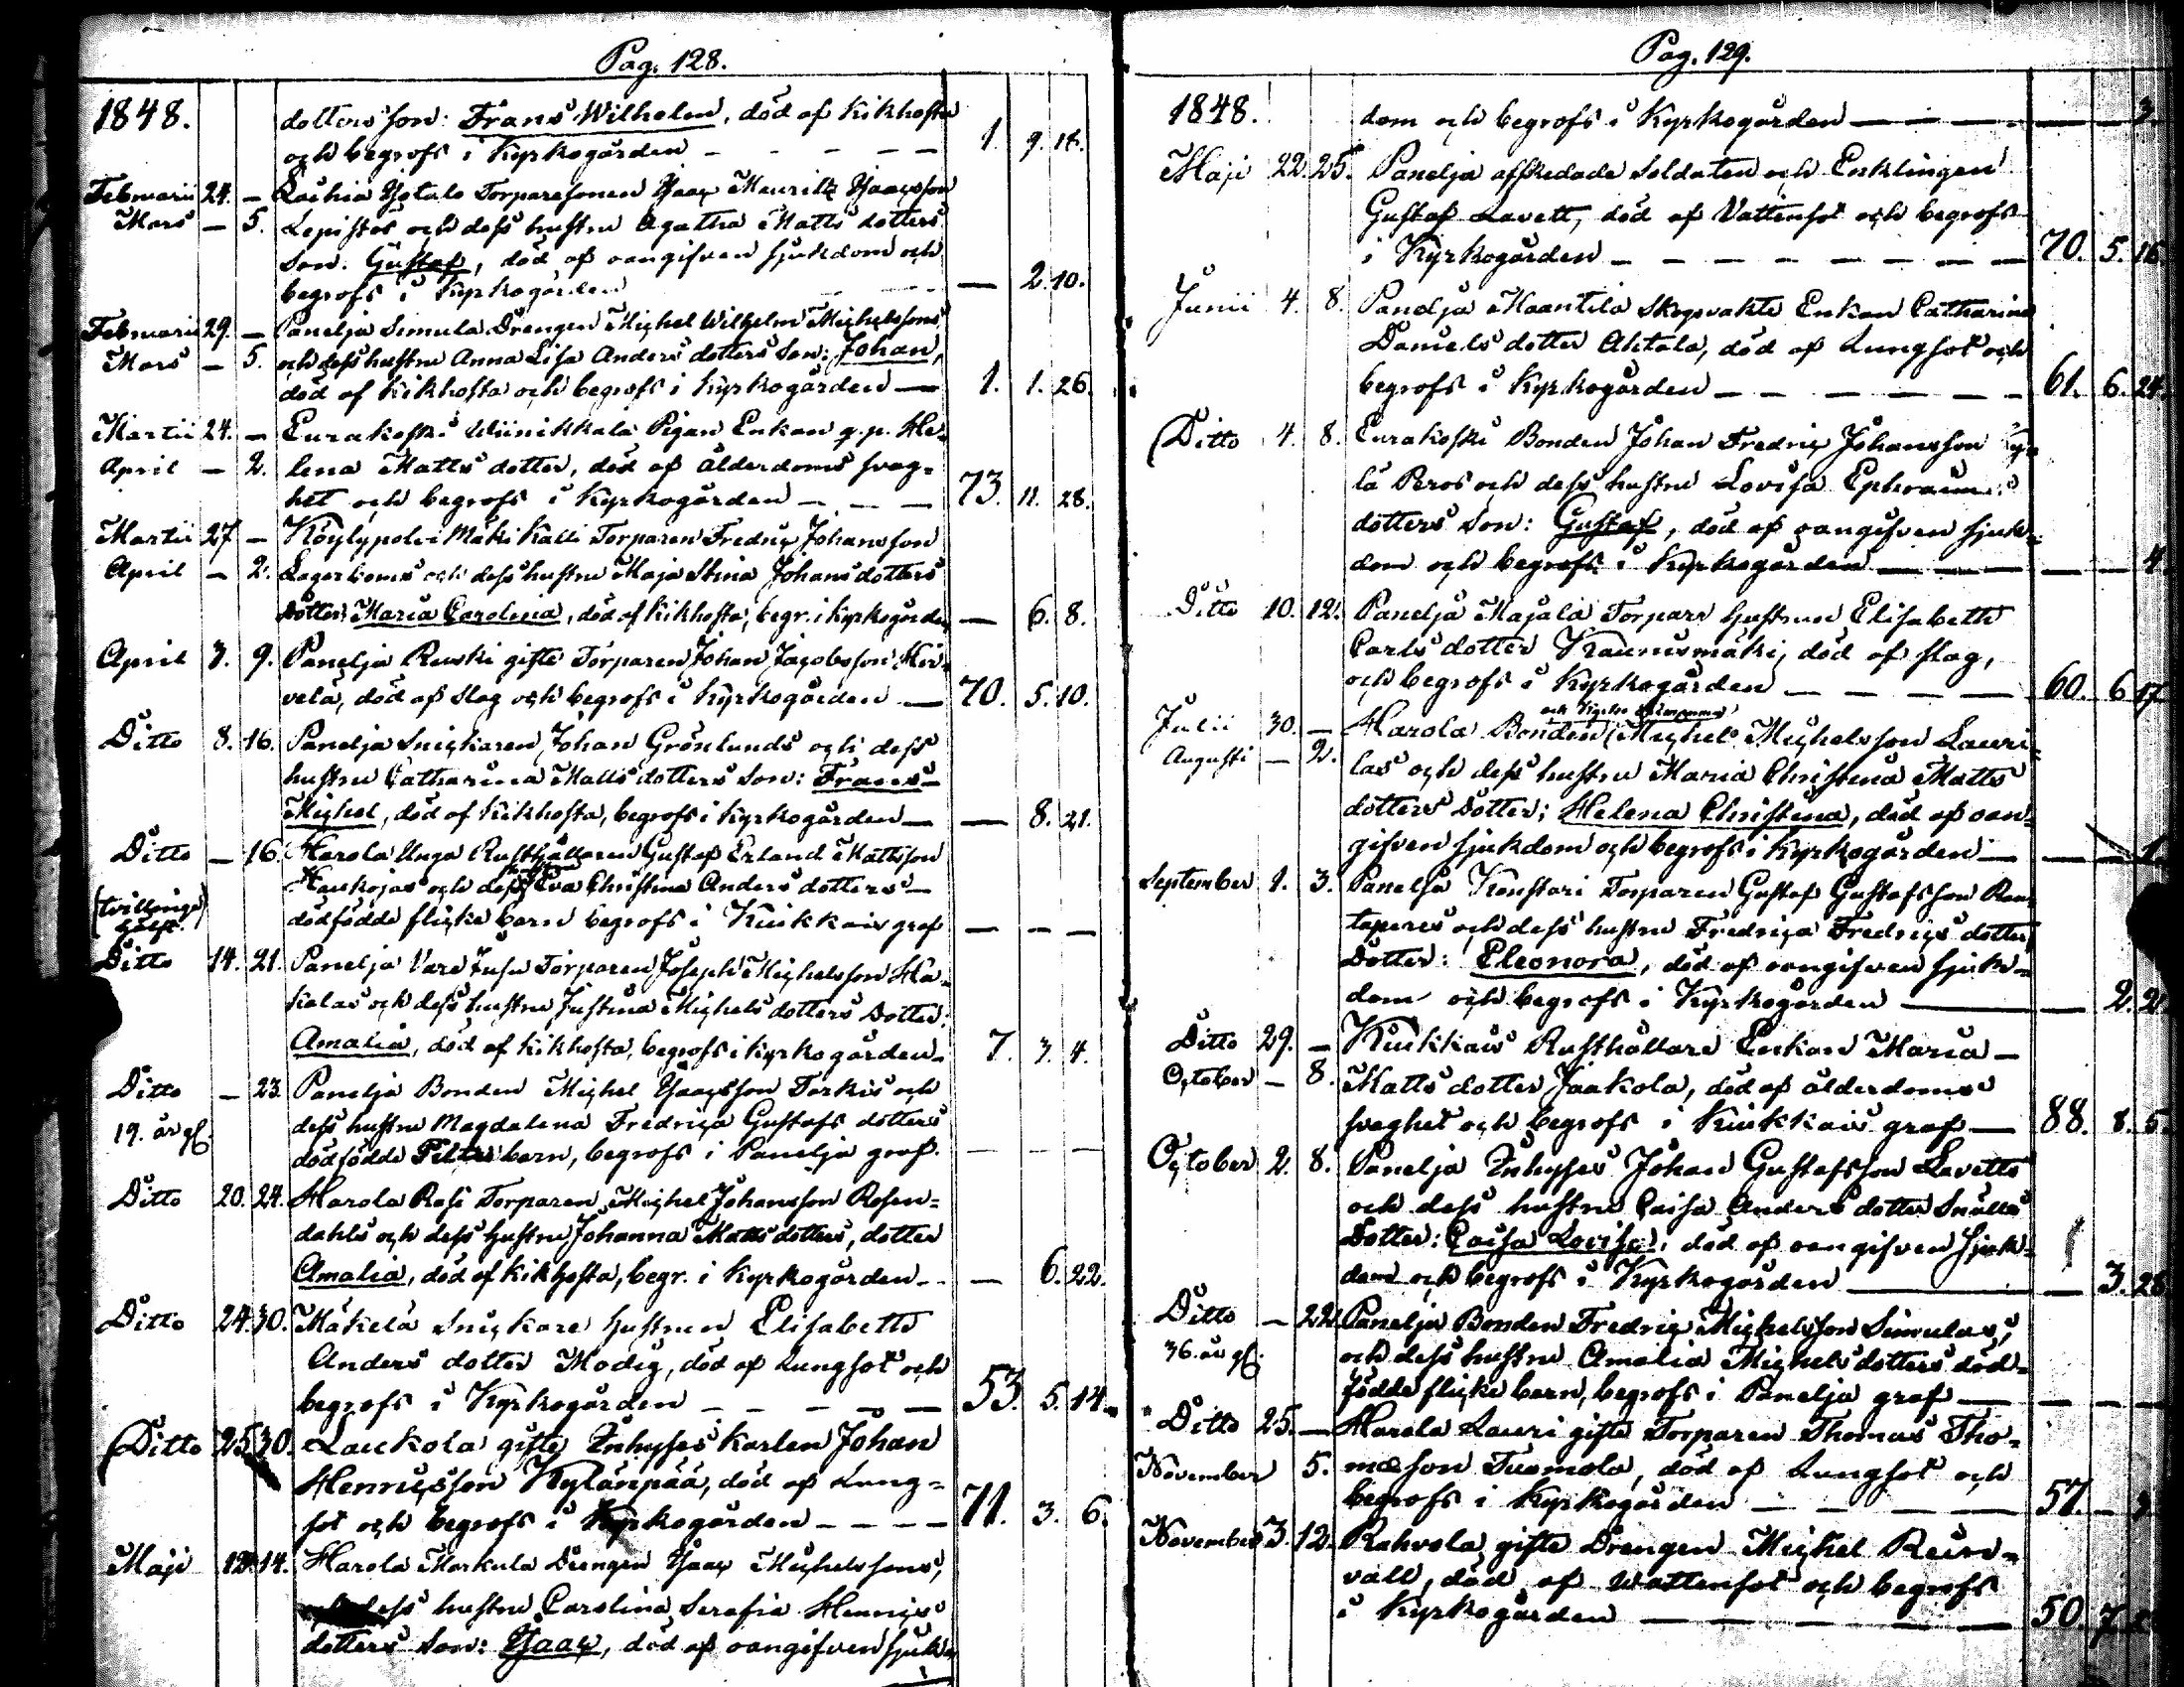 Pag. 128.
1848. dotters son: Frans Wilhelm, död af Kikhosta
och begrofs i Kyrkogården — — — — — 1. 9. 18.
Februarii 24. — Lachia Yotalo Torparesonen Isaac Mauritz Isaacsson
Mars — 5. Lepistös och dess hustru Agatha Matts dotters
Son: Gustaf, död af oangifven sjukdom och
begrofs i Kyrkogården — 2. 10.
Februarii 29. — Panelja Simula Drengen Michel Wilhelm Michelssons
Mars — 5. och dess hustru Anna Lisa Anders dotters Son: Johan,
död af Kikhosta och begrofs i Kyrkogården — 1. 1. 26.
Martii 24. — Eurakoski Wiinikkala Pigan Enkan g. p. He-
April — 2. lena Matts dotter, död af ålderdoms svag-
het och begrofs i Kyrkogården — — — 73. 11. 28.
Martii 27 — Köylypolvi Mäki Kalli Torparen Fredric Johansson
April — 2. Lagerboms och dess hustru Maja Stina Johans dotters
Dotter: Maria Carolina, död af Kikhosta, begr. i Kyrkogården — 6. 8.
April 3. 9. Panelja Rauski gifte Torparen Johan Jacobsson Hir-
velä, död af slag och begrofs i Kyrkogården — 70. 5. 10.
Ditto 8. 16. Panelja Snickaren Johan Grönlunds och dess
hustru Catharina Matts dotters Son: Frans
Michel, död af Kikhosta, begrofs i Kyrkogården — — 8. 21.
Ditto — 16. Harola Unga Rusthållaren Gustaf Erland Mattsson
Haukojas och dess Eva Christina Anders dotters —
(tvillinge) dödfödde flicke barn begrofs i Kiukkais graf — — —
Ditto 14. 21. Panelja Vare Jusu Torparen Joseph Michelsson Ha-
kalas och dess hustru Justina Michels dotters Dotter:
Amalia, död af Kikhosta, begrofs i Kyrkogården — 7. 3. 4.
Ditto — 23. Panelja Bonden Michel Isaacsson Torkis och
19. år gl. dess hustru Magdalena Fredrica Gustafs dotters
dödfödde Piltebarn, begrofs i Panelja graf. — — —
Ditto 20. 24. Harola Rosi Torparen Michel Johansson Rosen-
dahls och dess hustru Johanna Matts dotters, dotter
Amalia, död af Kikhosta, begr. i Kyrkogården — — 6. 22.
Ditto 24. 30. Mäkelä Snickare hustrun Elisabeth
Anders dotter Modig, död af Lungsot och
begrofs i Kyrkogården — — — — — 53. 5. 14.
Ditto 25. 30. Laukola gifte Inhyses karlen Johan
Henricsson Kylänpää, död af Lung-
sot och begrofs i Kyrkogården — — — — 71. 3. 6.
Maji 12. 14. Harola Markula Drengen Isaac Michelssons,
dess hustru Carolina Serafia Henrics
dotters Son: Isaac, död af oangifven sjuk-
Pag. 129.
1848. dom och begrofs i Kyrkogården — — — — — 3.
Maji 22. 25. Panelja afskedade Soldaten och Enklingen
Gustaf Lavett, död af Vattensot och begrofs
i Kyrkogården — — — — — — — — 70. 5. 16.
Junii 4. 8. Panelja Maantila Skogvakts Enkan Catharina
Daniels dotter Ahtola, död af Lungsot och
begrofs i Kyrkogården — — — — — — 61. 6. 24.
Ditto 4. 8. Eurakoski Bonden Johan Fredric Johansson
lä Pros och dess hustru Lovisa Ephraims
dotters Son: Gustaf, död af oangifven sjuk-
dom och begrofs i Kyrkogården — — — — — 4.
Ditto 10. 12. Panelja Majala Torpare hustrun Elisabeth
Carls dotter Kraunismäki, död af slag,
och begrofs i Kyrkogården — — — — 60. 6. 17.
Julii 30. — Harola Bonden Michel Michelsson Lauri-
Augusti — 2. las och dess hustru Maria Christina Matts
dotters Dotter: Helena Christina, död af oan-
gifven sjukdom och begrofs i Kyrkogården — — — 1.
September 1. 3. Panelja Konstari Torparen Gustaf Gustafsson
och dess hustru Fredrica Fredrics dotters
Dotter: Eleonora, död af oangifven sjuk-
dom och begrofs i Kyrkogården — — 2.
Ditto 29. — Kiukkais Rusthållare Enkan Maria —
October — 8. Matts dotter Jaakola, död af ålderdoms
svaghet och begrofs i Kiukkais graf — 88. 8. 5.
October 2. 8. Panelja Inhyses Johan Gustafsson Lavetts
och dess hustru Caisa Anders dotter Snälls
Dotter: Caisa Lovisa, död af oangifven sjuk-
dom och begrofs i Kyrkogården — — 3. 28.
Ditto — 22. Panelja Bonden Fredric Michelsson Simulas,
36. år gl. och dess hustru Amalia Michels dotters död-
födde flicke barn, begrofs i Panelja graf — — — —
Ditto 25. — Harola Lauri gifte Torparen Thomas Tho-
November 5. masson Tuomola, död af Lungsot och
begrofs i Kyrkogården — — — — 57. —
November 3. 12. Rahvola gifte Drengen Michel Rein-
vall, död af Wattensot och begrofs
i Kyrkogården — — — — 50. 7.